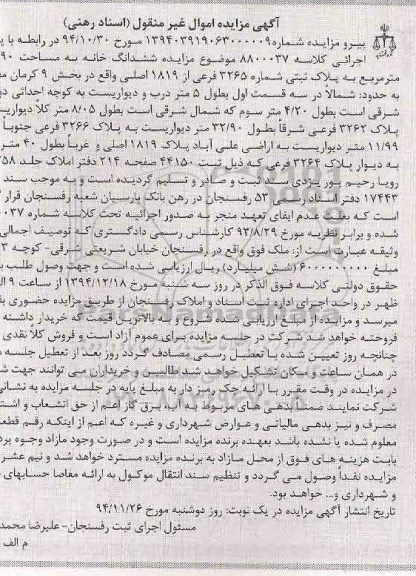 آگهی مزایده اموال غیر منقول (اسناد رهنی)
پیرو مزایده شماره ۱۳۹۴۰۳۹۱۹۰۶۳۰۰۰۰۰۹ مورخ ۹۴/۱۰/۳۰ در رابطه با پ
اجرائی کلاسه ۸۸۰۰۰۳۷ موضوع مزایده ششدانگ خانه به مساحت ۹۰
مترمربع به پلاک ثبتی شماره ۳۲۶۵ فرعی از ۱۸۱۹ اصلی واقع در بخش ۹ کرمان مع
به حدود: شمالاً در سه قسمت اول بطول ۵ متر درب و دیواریست به کوچه احداثی دو
شرقی است بطول ۴/۲۰ متر سوم که شمال شرقی است بطول ۸/۰۵ متر کلاً دیواریس
پلاک ۳۲۶۲ فرعی شرقاً بطول ۳۲/۹۰ متر دیواریست به پلاک ۳۲۶۶ فرعی جنوباً
۱۱/۹۹ متر دیواریست به اراضی علی آباد پلاک ۱۸۱۹ اصلی و غرباً بطول ۴۰ متر
به دیوار پلاک ۳۲۶۴ فرعی که ذیل ثبت ۴۴۱۵۰ صفحه ۲۱۴ دفتر املاک جلد ۲۵۸
رویا رحیم پور یزدی سند ثبت و صادر و تسلیم گردیده است و به موجب سند
۱۷۴۴۳ دفتر اسناد رسمی ۵۳ رفسنجان در رهن بانک پارسیان شعبه رفسنجان قرار گ
است که بعلت عدم ایفای تعهد منجر به صدور اجرائیه تحت کلاسه شماره ۰۰۳۷
شده و برابر نظریه مورخ ۹۳/۸/۲۹ کارشناس رسمی دادگستری که توصیف اجمالی
وثیقه عبارت است از: ملک فوق واقع در رفسنجان خیابان شریعتی شرقی- کوچه ۳
مبلغ ۶۰۰۰۰۰۰۰۰۰ (شش میلیارد) ریال ارزیابی شده است و جهت وصول طلب ب
حقوق دولتی کلاسه فوق الذکر در روز سه شنبه مورخ ۱۳۹۴/۱۲/۱۸ از ساعت ۹ ال
ظهر در واحد اجرای اداره ثبت اسناد و املاک رفسنجان از طریق مزایده حضوری بف
میرسد و مزایده از مبلغ ارزیابی شده شروع و به بالاترین قیمت که خریدار داشته
فروخته خواهد شد شرکت در جلسه مزایده برای عموم آزاد است و فروش کلاً نقدی
چنانچه روز تعیین شده با تعطیل رسمی مصادف گردد روز بعد از تعطیل جلسه م
در همان ساعت و مکان تشکیل خواهد شد طالبین و خریداران می توانند جهت ش
در مزایده در وقت مقرر با ارائه چک رمز دار به مبلغ پایه در جلسه مزایده به نشانی
شرکت نمایند ضمناً بدهی های مربوط به آب، برق گاز اعم از حق انشعاب و اشت
مصرف و نیز بدهی مالیاتی و عوارض شهرداری و غیره که اعم از اینکه رقم قطع
معلوم شده یا نشده باشد بعهده برنده مزایده است و در صورت وجود مازاد وجوه پرد
بابت هزینه های فوق از محل مازاد به برنده مزایده مسترد خواهد شد و نیم عشر
مزایده نقداً وصول می گردد و تنظیم سند انتقال موکول به ارائه مفاصا حسابهای
و شهرداری و... خواهد بود.
تاریخ انتشار آگهی مزایده در یک نوبت: روز دوشنبه مورخ ۹۴/۱۱/۲۶
مسئول اجرای ثبت رفسنجان-علیرضا محمد
م الف